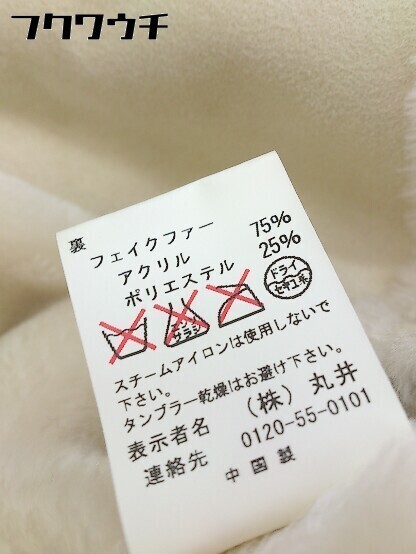 フクワウチ
裏
フェイクファー
アクリル 75%
ポリエステル 25%
エンソ サラシ
ドライ
セキユ系
スチームアイロンは使用しないで
下さい。
タンブラー乾燥はお避け下さい。
表示者名 (株) 丸井
連絡先 0120-55-0101
中国製